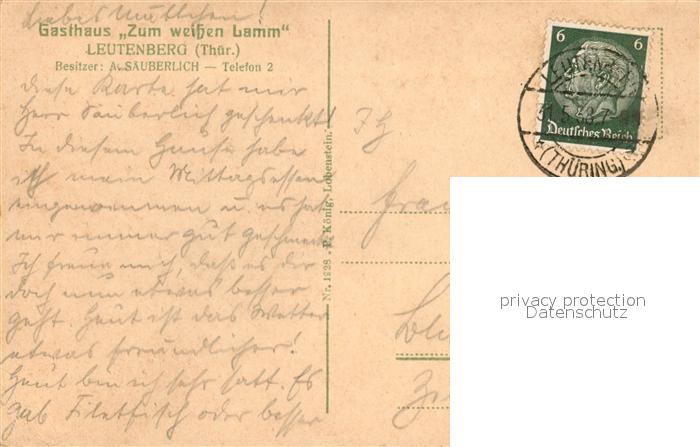 Liebes Muttchen!
Gasthaus „Zum weißen Lamm“
LEUTENBERG (Thür.)
Besitzer: A. SÄUBERLICH — Telefon 2
diese Karte hat mir
Herr Säuberlich geschenkt!
In diesem Hause habe
ich mein Mittagessen
eingenommen u. es hat
mir immer gut geschmeckt
Ich freue mich, daß es dir
doch nun etwas besser
geht. Heut ist das Wetter
etwas freundlicher!
Heut bin ich sehr satt. Es
gab Filetfisch oder besser
Nr. 1928 . P. König, Lobenstein.
6 6
Deutsches Reich
LEUTENBERG
(THÜRING.)
Frau
privacy protection
Datenschutz